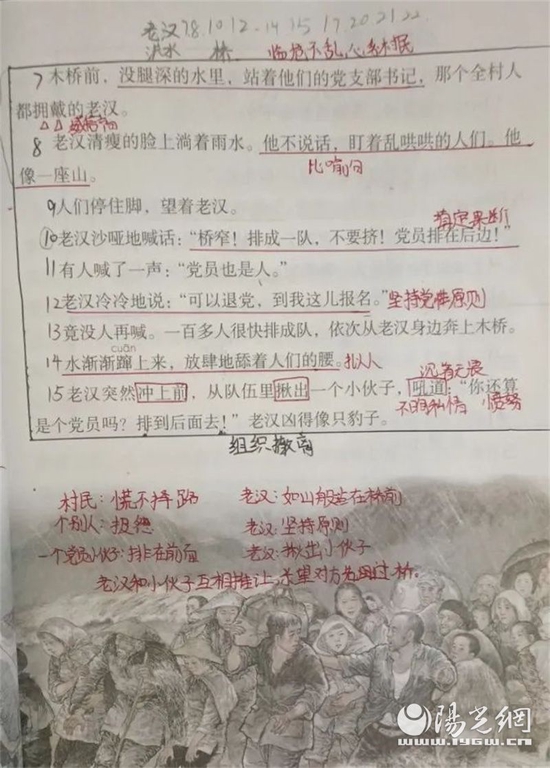 老汉7.8.10.12-14.15 17.20.21.22
洪水 桥 临危不乱心系村民
7木桥前，没腿深的水里，站着他们的党支部书记，那个全村人
都拥戴的老汉。
8 老汉清瘦的脸上淌着雨水。他不说话，盯着乱哄哄的人们。他
像一座山。
比喻句
9人们停住脚，望着老汉。
肯定果断
10老汉沙哑地喊话：“桥窄！排成一队，不要挤！党员排在后边！”
11有人喊了一声：“党员也是人。”
12老汉冷冷地说：“可以退党，到我这儿报名。”坚持党性原则
13竟没人再喊。一百多人很快排成队，依次从老汉身边奔上木桥。
cuān
14水渐渐蹿上来，放肆地舔着人们的腰。拟人
15老汉突然冲上前，从队伍里揪出一个小伙子，吼道：“你还算
不徇私情 愤怒
是个党员吗？排到后面去！”老汉凶得像只豹子。
组织撤离
村民：慌不择路 老汉：如山般站在桥前
个别人：报怨 老汉：坚持原则
一个小伙子：排在前面 老汉：揪出小伙子
老汉和小伙子互相推让，希望对方先过桥。
陽光網
www.iygw.cn